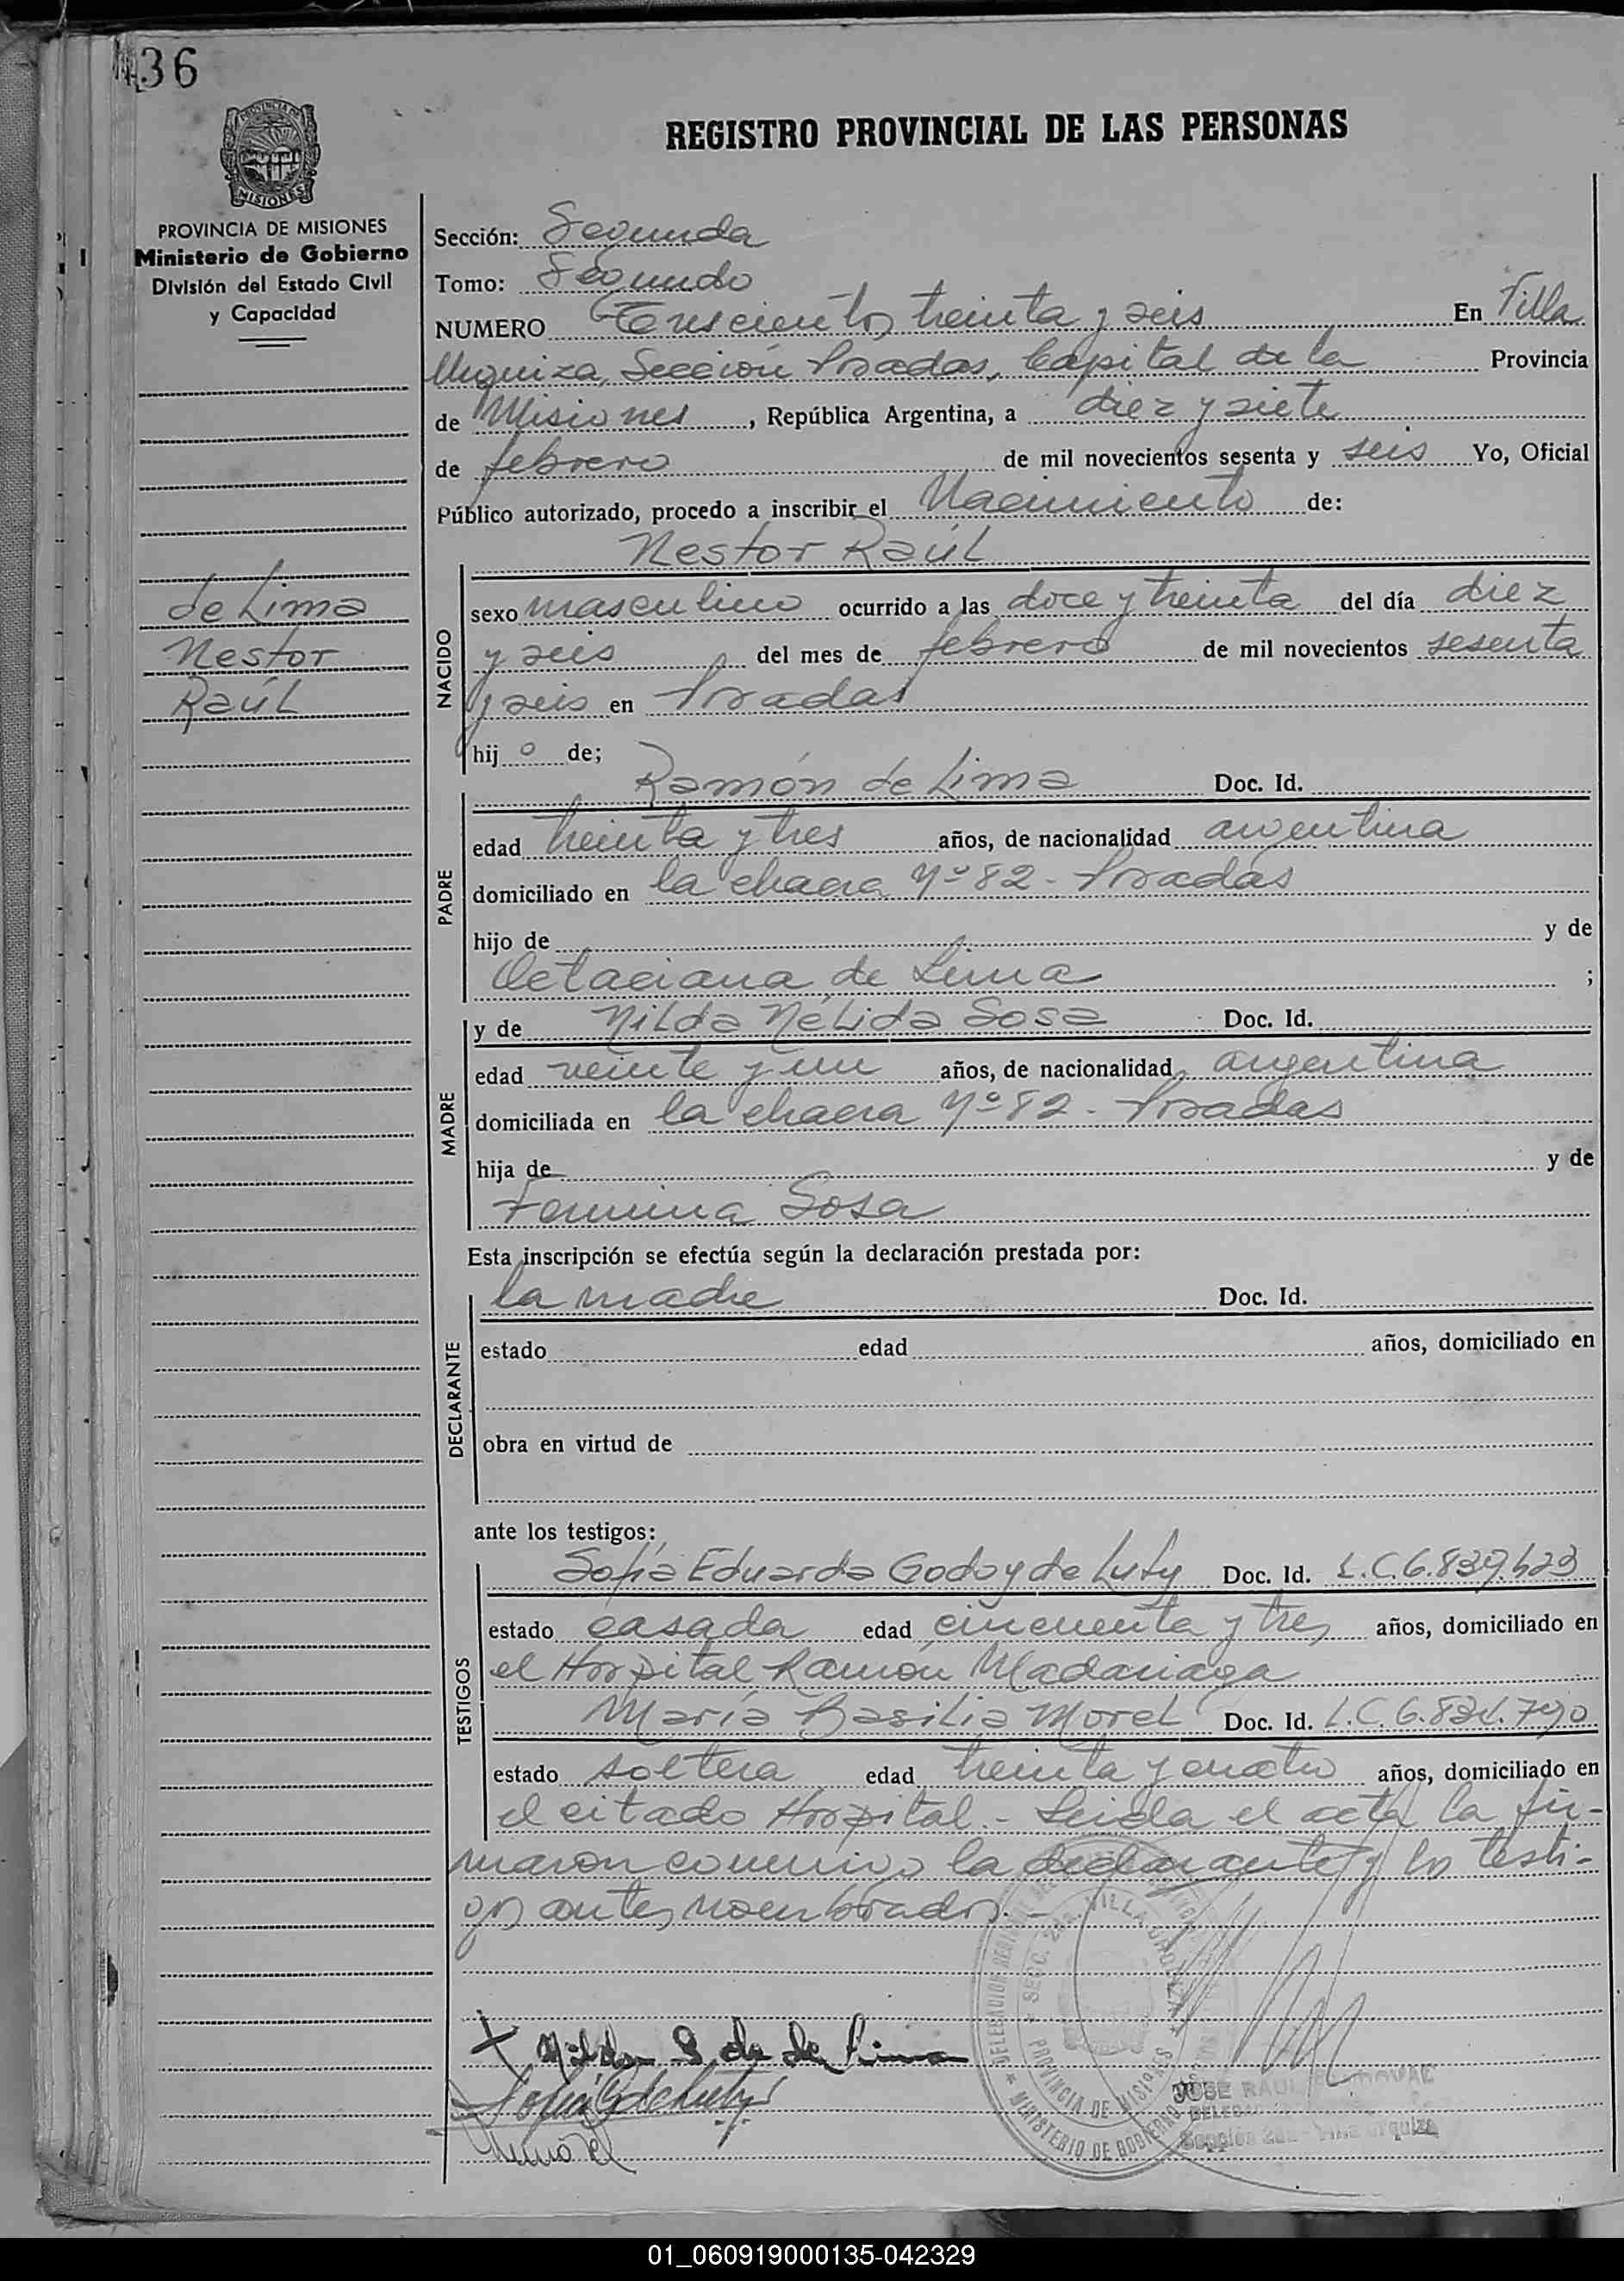 36
REGISTRO PROVINCIAL DE LAS PERSONAS
MISIONES
PROVINCIA DE MISIONES
Ministerio de Gobierno
División del Estado Civil
y Capacidad
de Lima
Nestor
Raúl
Sección: Segunda
Tomo: Segundo
NUMERO Trescientos treinta y seis En Villa
Urquiza, Sección Posadas, Capital de la Provincia
de Misiones, República Argentina, a diez y siete
de febrero de mil novecientos sesenta y seis Yo, Oficial
Público autorizado, procedo a inscribir el Nacimiento de:
Nestor Raúl
NACIDO
sexo masculino ocurrido a las doce y treinta del día diez
y seis del mes de febrero de mil novecientos sesenta
y seis en Posadas
hij o de;
PADRE
Ramón de Lima Doc. Id.
edad treinta y tres años, de nacionalidad argentina
domiciliado en la chacra Nº 82 - Posadas
hijo de y de
Octaciana de Lima ;
MADRE
y de Nilda Nélida Sosa Doc. Id.
edad veinte y un años, de nacionalidad argentina
domiciliada en la chacra Nº 82 - Posadas
hija de y de
Fermina Sosa
Esta inscripción se efectúa según la declaración prestada por:
DECLARANTE
la madre Doc. Id.
estado edad años, domiciliado en
obra en virtud de
ante los testigos:
TESTIGOS
Sofía Eduarda Godoy de Luty Doc. Id. L.C. 6.839.423
estado casada edad cincuenta y tres años, domiciliado en
el Hospital Ramón Madariaga
María Basilia Morel Doc. Id. L.C. 6.831.790
estado soltera edad treinta y cuatro años, domiciliado en
el citado Hospital.- Leida el acta la fir-
maron conmigo la declarante y los testi-
gos antes nombrados.-
SECC. 2da. VILLA URQUIZA
PROVINCIA DE MISIONES
MINISTERIO DE GOBIERNO
Nilda S de de Lima
JOSE RAUL
Sección 2da - Villa Urquiza
Morel
01_060919000135-042329